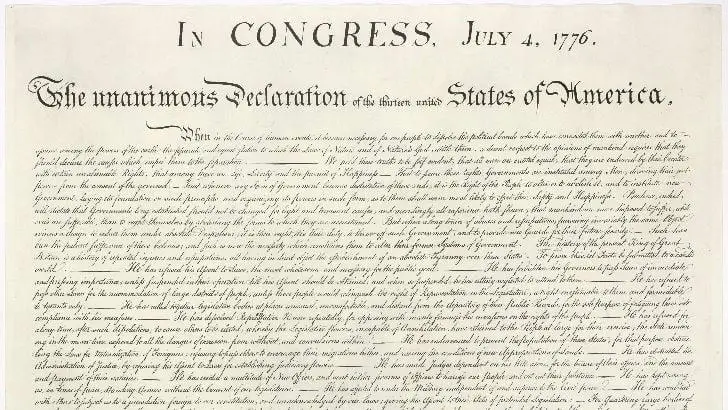 IN CONGRESS, JULY 4, 1776.
The unanimous Declaration of the thirteen united States of America,
When in the Course of human events, it becomes necessary for one people to dissolve the political bands which have connected them with another, and to
assume among the powers of the earth, the separate and equal station to which the Laws of Nature and of Nature's God entitle them, a decent respect to the opinions of mankind requires that they
should declare the causes which impel them to the separation. We hold these truths to be self-evident, that all men are created equal, that they are endowed by their Creator
with certain unalienable Rights, that among these are Life, Liberty and the pursuit of Happiness. — That to secure these rights, Governments are instituted among Men, deriving their just
powers from the consent of the governed, — That whenever any Form of Government becomes destructive of these ends, it is the Right of the People to alter or to abolish it, and to institute new
Government, laying its foundation on such principles and organizing its powers in such form, as to them shall seem most likely to effect their Safety and Happiness. Prudence, indeed,
will dictate that Governments long established should not be changed for light and transient causes; and accordingly all experience hath shewn, that mankind are more disposed to suffer, while
evils are sufferable, than to right themselves by abolishing the forms to which they are accustomed. But when a long train of abuses and usurpations, pursuing invariably the same Object
evinces a design to reduce them under absolute Despotism, it is their right, it is their duty, to throw off such Government, and to provide new Guards for their future security. — Such has
been the patient sufferance of these Colonies; and such is now the necessity which constrains them to alter their former Systems of Government. The history of the present King of Great
Britain is a history of repeated injuries and usurpations, all having in direct object the establishment of an absolute Tyranny over these States. To prove this, let Facts be submitted to a candid
world. He has refused his Assent to Laws, the most wholesome and necessary for the public good. He has forbidden his Governors to pass Laws of immediate
and pressing importance, unless suspended in their operation till his Assent should be obtained; and when so suspended, he has utterly neglected to attend to them. He has refused to
pass other Laws for the accommodation of large districts of people, unless those people would relinquish the right of Representation in the Legislature, a right inestimable to them and formidable
to tyrants only. He has called together legislative bodies at places unusual, uncomfortable, and distant from the depository of their Public Records, for the sole purpose of fatiguing them into
compliance with his measures. He has dissolved Representative Houses repeatedly, for opposing with manly firmness his invasions on the rights of the people. He has refused for
a long time, after such dissolutions, to cause others to be elected; whereby the Legislative powers, incapable of Annihilation, have returned to the People at large for their exercise; the State remain-
ing in the mean time exposed to all the dangers of invasion from without, and convulsions within. He has endeavoured to prevent the population of these States; for that purpose obstruc-
ting the Laws for Naturalization of Foreigners; refusing to pass others to encourage their migrations hither, and raising the conditions of new Appropriations of Lands. He has obstructed the
Administration of Justice, by refusing his Assent to Laws for establishing Judiciary powers. He has made Judges dependent on his Will alone, for the tenure of their offices, and the amount
and payment of their salaries. He has erected a multitude of New Offices, and sent hither swarms of Officers to harrass our people, and eat out their substance. He has kept among
us, in times of peace, Standing Armies without the Consent of our legislatures. He has affected to render the Military independent of and superior to the Civil power. He has combined
with others to subject us to a jurisdiction foreign to our constitution, and unacknowledged by our laws; giving his Assent to their Acts of pretended Legislation: For Quartering large bodies of